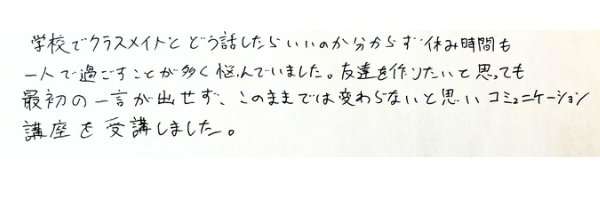 学校でクラスメイトとどう話したらいいのか分からず休み時間も
一人で過ごすことが多く悩んでいました。友達を作りたいと思っても
最初の一言が出せず、このままでは変わらないと思いコミュニケーション
講座を受講しました。